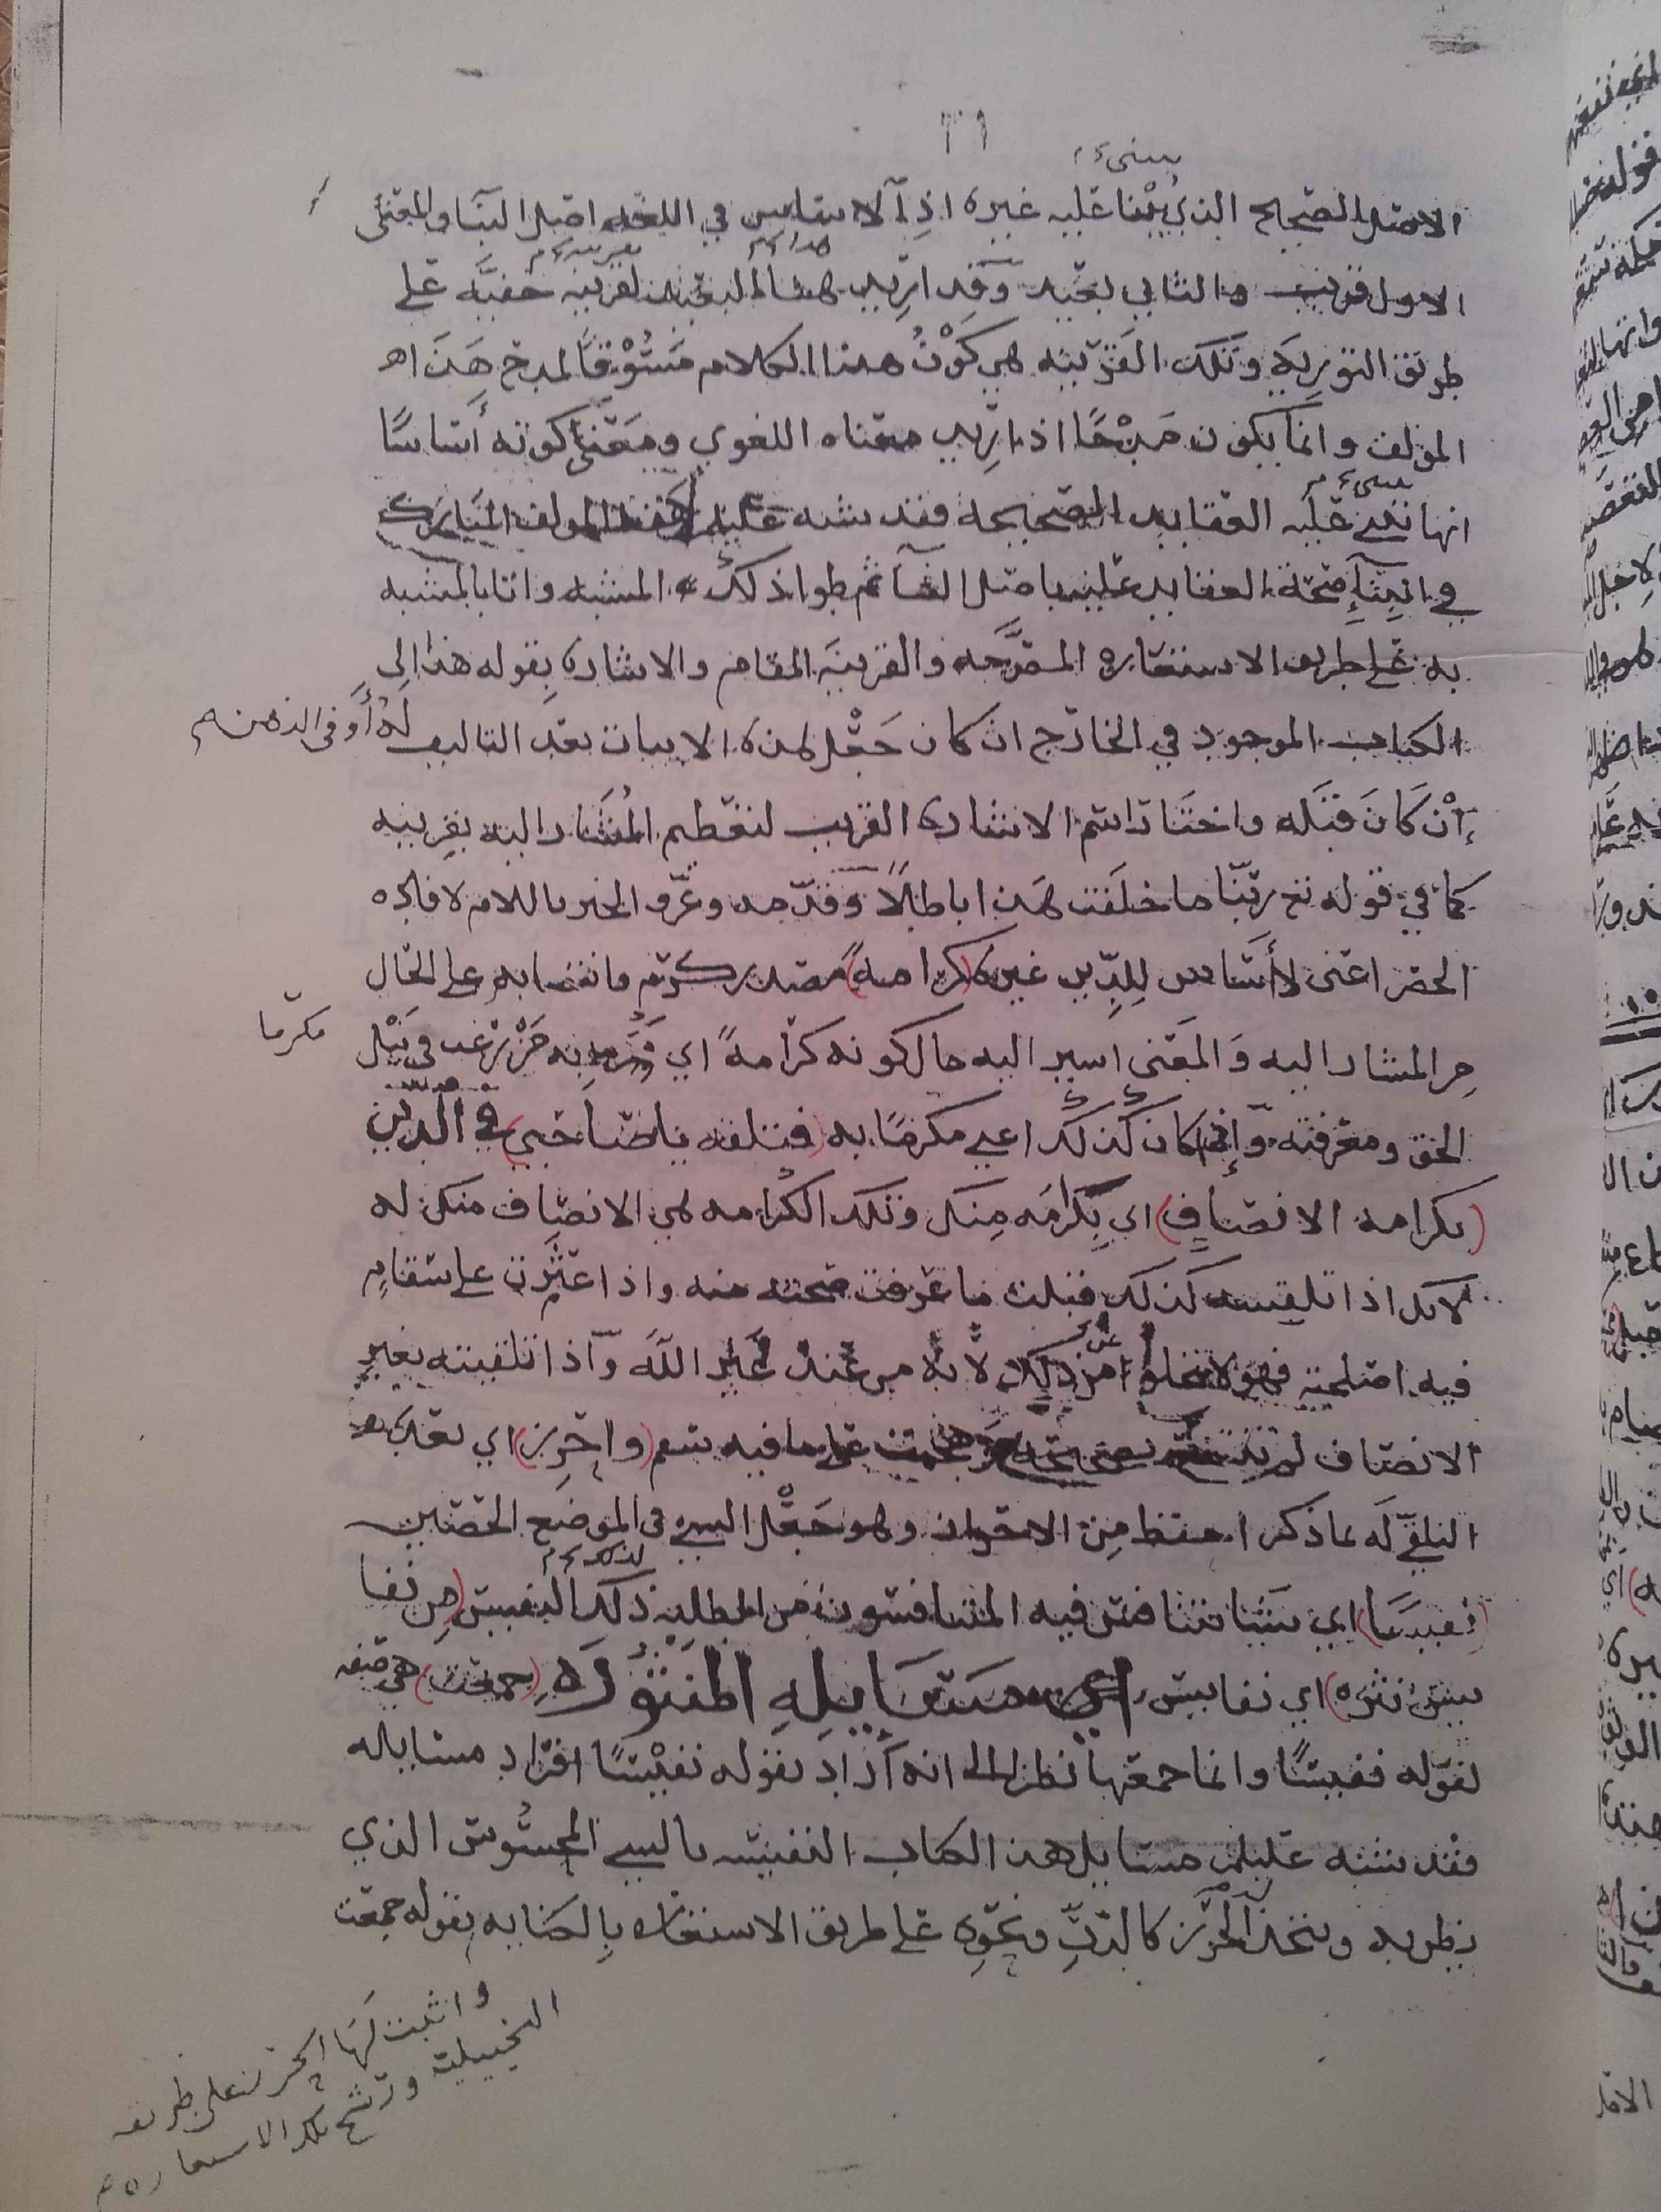 ٣١
يبنى
الاصل الصحيح الذي يبنا عليه غيره اذ الاساس في اللغه اصل البنا والمعنى
الاول قريب والثاني بعيد وقد اريد هنا البعيد لقرينه خفيه على
طريق التوريه وتلك القرينه هي كون هذا الكلام مسوقا لمدح هذا
المؤلف وانما يكون مدحا اذا اريد معناه اللغوي ومعنى كونه أساسا
انها تبنى عليه العقايد الصحيحه فقد شبه المولف
في صحة العقايد عليه باصل البنا ثم طوا ذكر المشبه واتا بالمشبه
به على طريق الاستعاره المصرحه والقرينه المقام والاشاره بقوله هذا الى
الكتاب الموجود في الخارج ان كان جعل هذه الابيات بعد التاليف له أو في الذهن
إن كان قبله واختار اسم الاشاره القريب لتعظيم المشار اليه بقربه
كما في قوله تع ربنا ما خلقت هذا باطلا وقدمه وعرف الخبر باللام لافاده
الحصر اعنى لا أساس للدين غيره (كرامه) مصدر كرم وانتصابه على الحال
من المشار اليه والمعنى اسير اليه حال كونه كرامة اي به من يرغب في نيل
مكرما
الحق ومعرفته وإن كان كذلك اعني مكرما به (فتلقه يا صاحبي) في الدين
(بكرامه الانصاف) اي بكرامه منك وتلك الكرامه هي الانصاف منك له
لانك اذا تلقيته كذلك قبلت ما عرفت صحته منه واذا عثرت على سقام
فيه اصلحته فهو لا يخلو عن ذلك لانه من عند غير الله واذا تلقيته بغير
الانصاف لم على ما فيه سقم (واحرز) اي بعد
التلقي له بما ذكر احفظ من الاحراز وهو جعل الشيء في الموضع الحصين
(نفيسا) اي شيئا تنافس فيه المتنافسون من المطلب ذلك النفيس (من نفا
يس نثره) اي نفايس اي مسايله المنثوره (جمعت) هي صفه
لقوله نفيسا وانما جمعها نظرا الى انه أراد بقوله نفيسا افراد مسايله
فقد شبه مسايل هذا الكتاب النفيسه بالشي المحسوس الذي
يظر به ويتخذ الحرز كالدر ونحوه على طريق الاستعاره بالكنايه بقوله جمعت
واثبت لها الحرز على طريق
التخييلية ورشح تلك الاستعاره